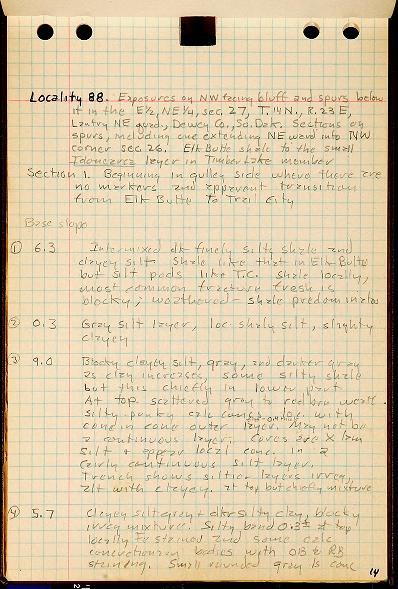 Locality 88. Exposures on NW facing bluff and spurs below
it in the E½, NE¼, sec. 27, T.14N., R.23E,
Lantry NE quad., Dewey Co., So. Dak. Sections on
spurs, including one extending NE ward into NW
corner sec. 26. Elk Butte shale to the small
Idonearca layer in Timber Lake member
Section 1. Beginning in gulley side where there are
no markers and apparent transition
from Elk Butte to Trail City
Base slope
① 6.3 Intermixed dk finely silty shale and
clayey silt. Shale like that in Elk Butte
but silt pods like T.C. shale locally,
most common fracture fresh is
blocky; weathered - shale predominates
② 0.3 Gray silt layer, loc. shaly silt, slighty
clayey
③ 9.0 Blocky clayey silt, gray, and darker gray
as clay increases, some silty shale
but this chiefly in lower part
At top scattered gray to red brn weath.
silty punky calc concs. loc. with
cone in cone outer layer. May not be
a continuous layer. Concs are X lam
silt & appear local conc. in a
fairly continuous silt layer.
Trench shows siltier layers irreg.
alt with clayey. at top but chiefly mixture
④ 5.7 Clayey silt gray & dk silty clay, blocky
irreg mixture. Silty band 0.3± at top
locally Fe stained and some calc
concretionary bodies with OB & RB
staining. Small rounded gray ls conc
14